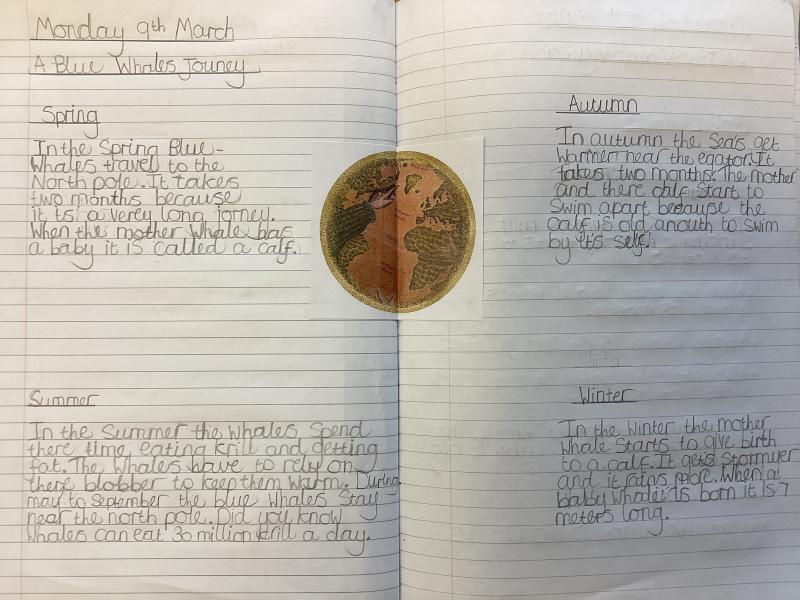 Monday 9th March
A Blue Whales Jouney
Spring
In the Spring Blue-
Whales travel to the
North pole. It takes
two months because
it is a verey long jorney.
When the mother whale has
a baby it is called a calf.
Summer
In the Summer the whales Spend
there time eating krill and getting
fat. The whales have to rely on
there blobber to keep them warm. During
may to September the blue whales stay
near the north pole. Did you know
Whales can eat 30 million krill a day.
Autumn
In autumn the Sea's get
warmer near the egator. It
takes two months. The mother
and there calf Start to
Swim apart because the
calf is old anouth to swim
by it's self.
Winter
In the winter the mother
whale Starts to give birth
to a calf. It gets Stormyer
and it rains more. When a
baby whale is born it is 7
meters long.